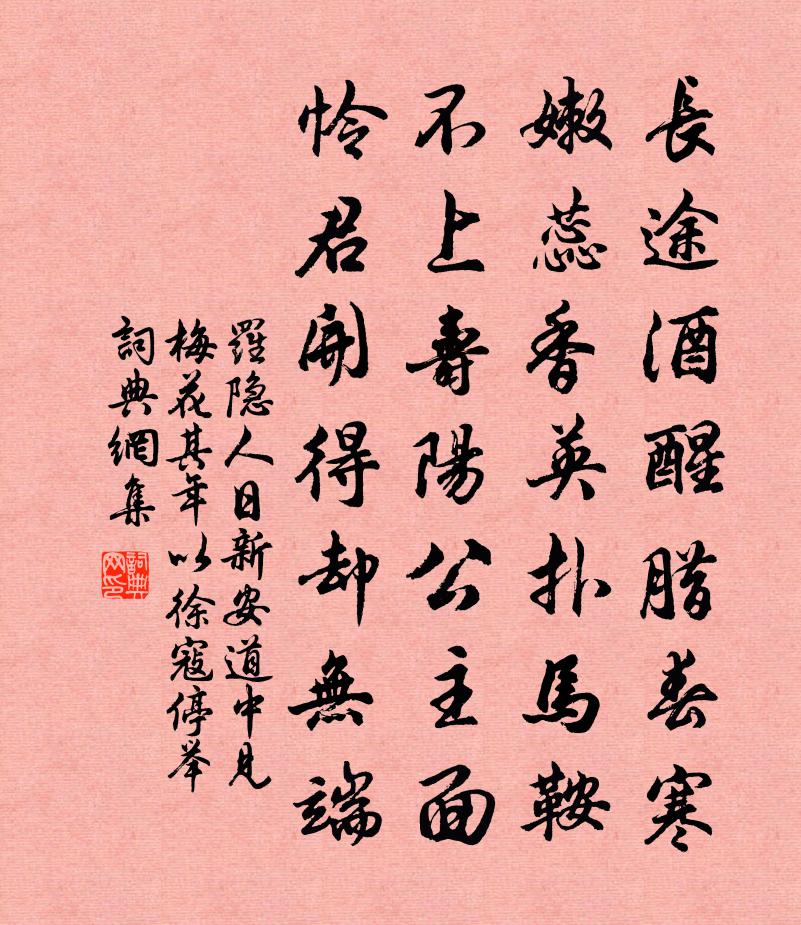 長途酒醒腊春寒
嫩蕊香英扑馬鞍
不上壽陽公主面
怜君開得却無端
羅隐人日新安道中見
梅花其年以徐寇停举
詞典網集
詞典网印